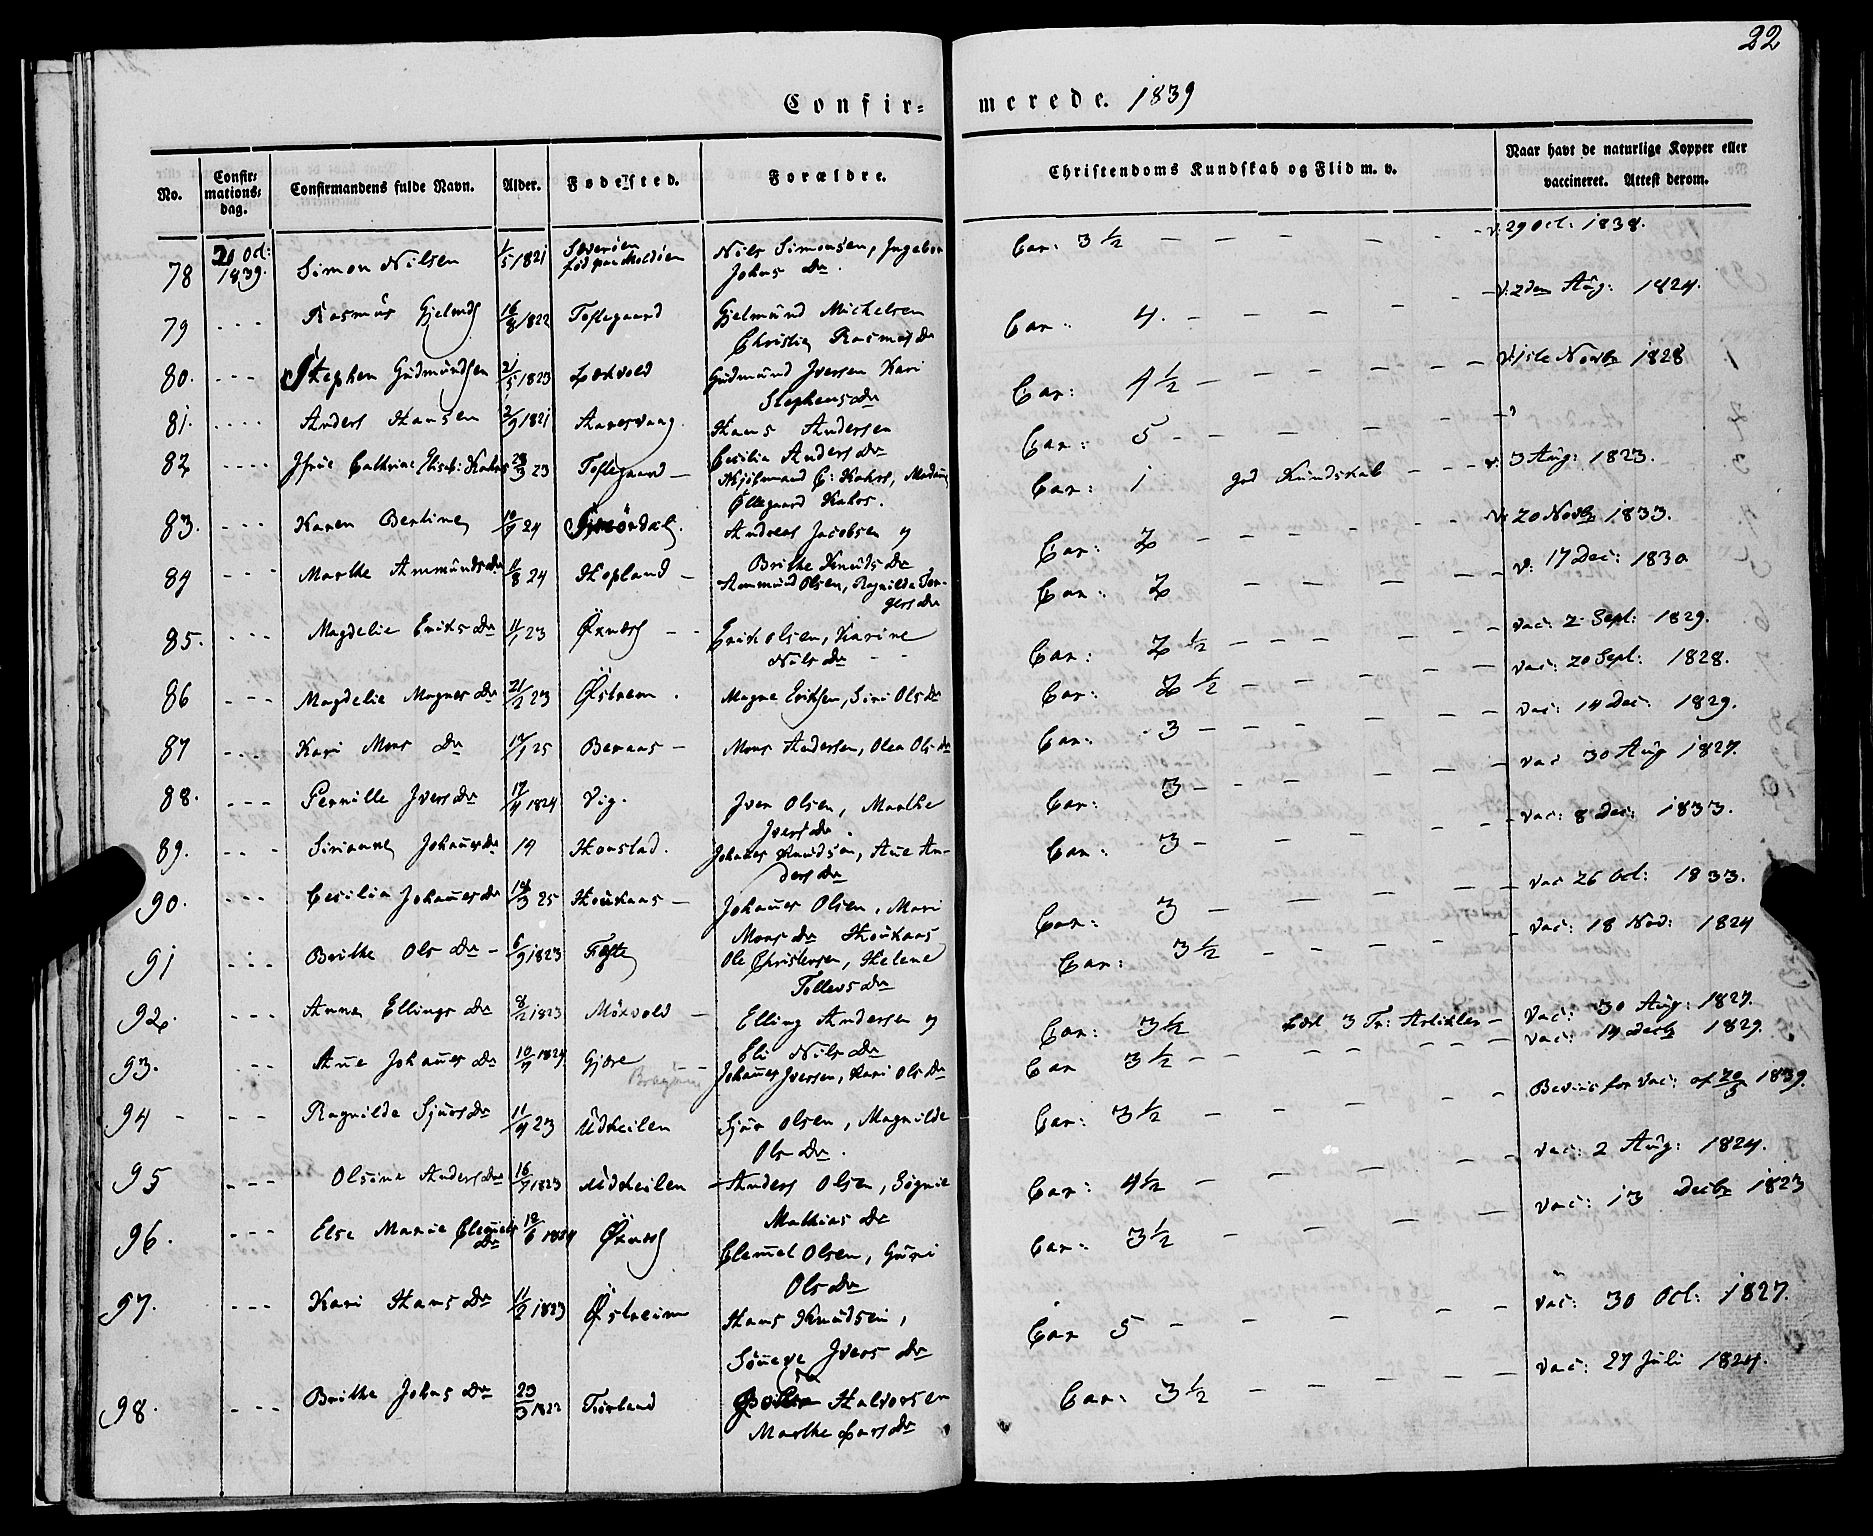 22
Confir= merede. 1839
No. Confir= mations= dag. Confirmandens fulde Navn. Alder. Fødested. Forældre. Christendoms Kundskab og Flid m. v. Naar havt de naturlige Kopper eller vaccineret. Attest derom.
78 20 Oct: 1839. Simon Nilsen 1/5 1821 Nils Simonsen, Ingebor Johns Dr. Car: 3 1/2 – – – – – – v. 29 Oct: 1838.
79 - - - Rasmus 16/8 1822 Toftegaard Gjelmund Michelsen Christie Rasmus Dr Car: 4. – – – – – v: 2den Aug: 1824.
80. - - - Stephen Gudmundsen 2/5 1823 Lekvold Gudmund Iversen Kari Stephens Dr Car: 4 1/2 – – – – – – v: 1ste Novbr 1828
81. - - - - Anders Hansen 2/9 1821 Hanevaag. Hans Andersen Cecilia Anders Dr Car: 5 – – – – –
82 - - - - Jfrue Cathrine Elisab: Kahrs 23/3 23 Toftegaard – C: Kahrs, Madam Øllegaard Kahrs. Car: 1 god Kundskab – – – v. 3 Aug: 1823.
83. - - - Karen Bertine 10/9 24 Andreas Jacobsen og Brithe Knuds Dr Car: 2 – – – – – – v. 20 Novbr 1833.
84 - - - Marthe Ammunds Dr 11/8 24 Hopland – Ammund Olsen, Ragnilda Tor- gers Dr Car: 2 – – – – – v: 17 Dec: 1830
85. - - - Magdelie Eriks Dr 11/1 23 – – Erik Olsen, Karine Nils Dr – – Car: 2 1/2 – – – – – – vac: 2 Sept: 1829.
86 - - - Magdelie Magnes Dr 21/2 23 Østrem . Magne Eriksen, Siri Ols Dr Car: 2 1/2 – – – – – vac: 20 Sept: 1828.
87 - - - Kari Mons Dr 17/1 25 Beraas – Mons Andersen, Olea Ols Dr Car: 3 – – – – – – vac: 14 Dec: 1829.
88. - - - Pernille Ivers Dr 17/4 1824 Vig. Iver Olsen, Marthe Ivers Dr. Car: 3 – – – – – vac 30 Aug 1827.
89. - - - Sirianne Johannes Dr 19 Konstad. Johannes Knudsen, Ane An- ders Dr Car: 3 – – – – vac: 8 Dec: 1833.
90. - - - Cecilia Johannes Dr 14/3 25 Houkaas – Johannes Olsen, Mari Mons Dr Houkaas Car: 3 – – – – – vac 26 Oct: 1833.
91 - - - Brithe Ols Dr – 6/9 1823 Tofte Ole Christensen, Helene Tollevs Dr Car: 3 1/2 – – – – – – vac: 18 Nov: 1824
92. - - - Anna Ellings Dr 8/2 1823 Møkvold – Elling Andersen og Eli Nils Dr Car: 3 1/2 Læst 3 Tr: Artikler – vac: 30 Aug: 1827.
93. - - - Ane Johannes Dr 10/9 1824. Gjøre – – Johannes Iversen, Kari Ols Dr Car 3 1/2 – – – – – – vac: 14 Decbr 1829.
94 – - - Ragnilde Sjurs Dr 11/4 23 Udkeilen Sjur Olsen, Magnilde Ols Dr. Car: 3 1/2 – – – – – – Beviis for vac: af 20/3 1839.
95 - - - Olsine Anders Dr 16/7 1823 Udkeilen – Anders Olsen, Signie Mathias Dr Car: 4 1/2 – – – – – – vac: 2 Aug: 1824.
96. - - - Else Marie Clemets Dr 12/6 1824 Clemet Olsen, Guri Ols Dr Car: 3 1/2 – – – – vac: 13 Decbr 1823
97. - - - Kari Hans Dr 11/2 1823 Østreim Hans Knudsen, Sønneve Ivers Dr Car 5 – – – – – vac: 30 Oct: 1827.
98. - - - Brithe Johns Dr 23/3 1822 Torland Halvorsen Marthe Lars Dr Car: 3 1/2 – – – – – – vac: 27 Juli 1824.